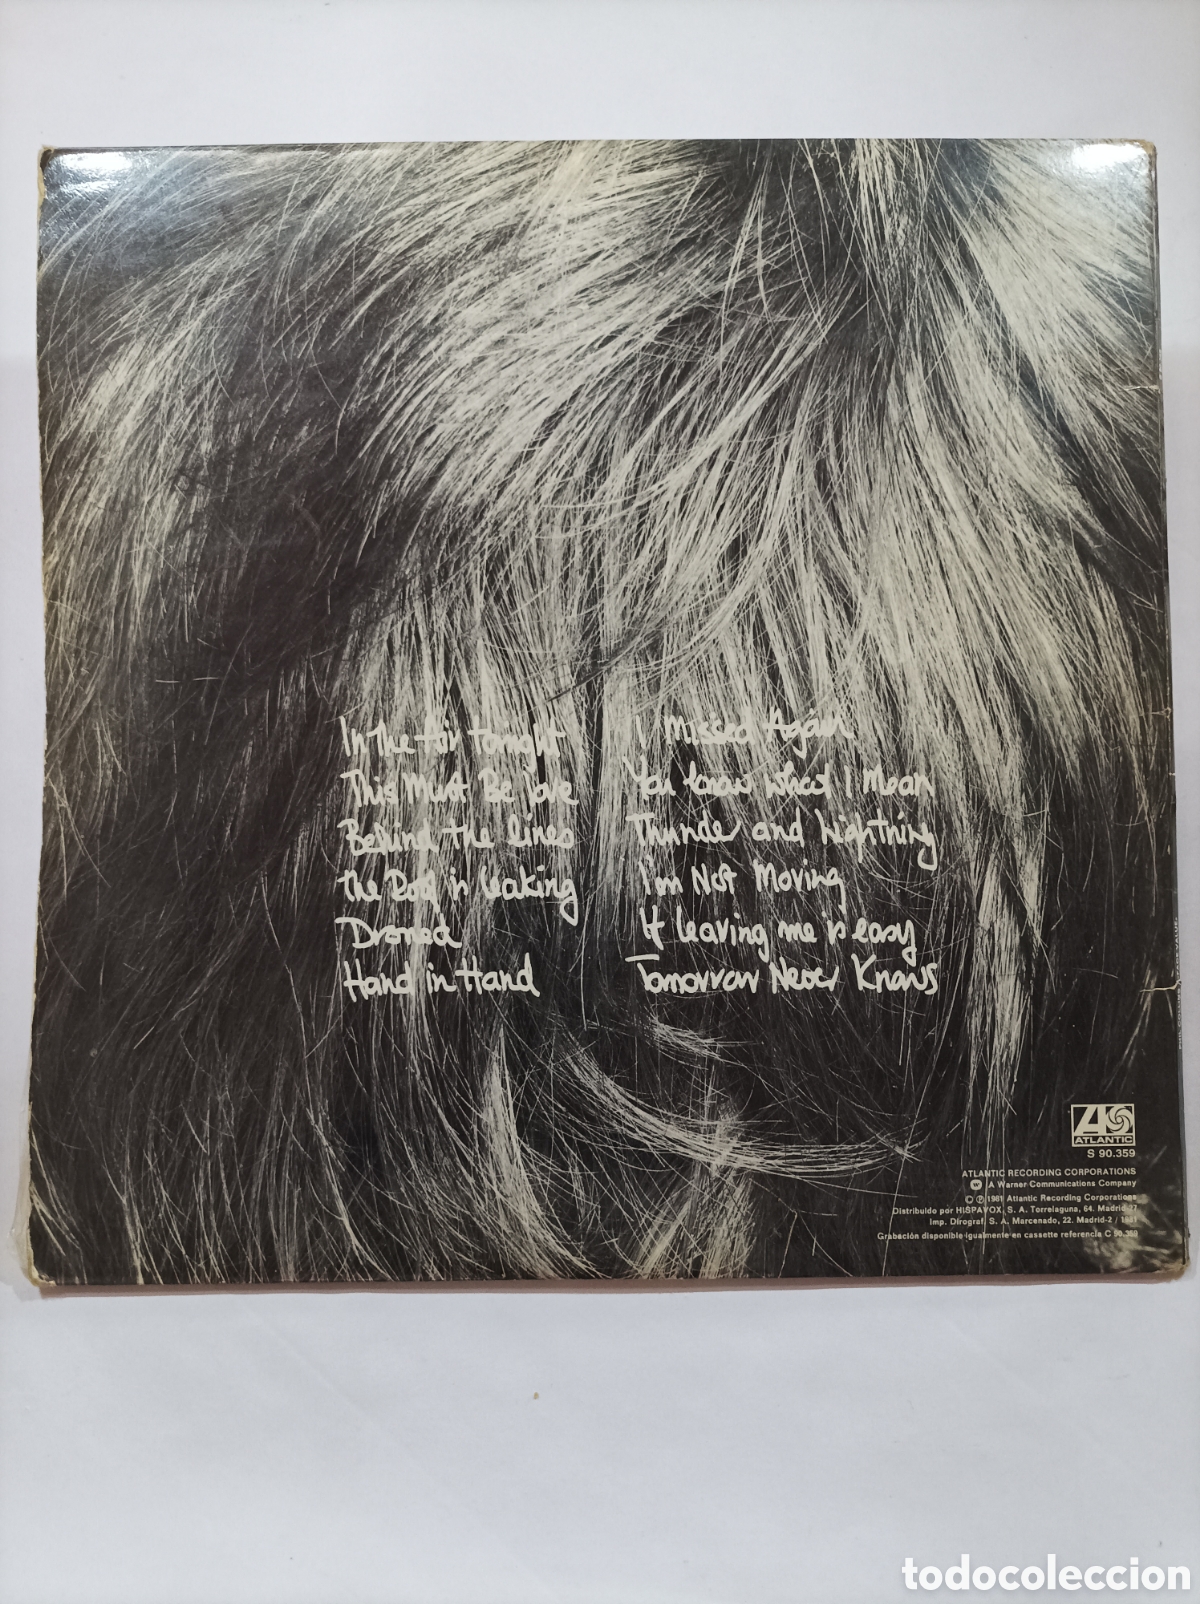 In the Air Tonight
This Must Be Love
Behind the Lines
The Roof is Leaking
Droned
Hand in Hand
I Missed Again
You Know What I Mean
Thunder and Lightning
I'm Not Moving
If leaving me is easy
Tomorrow Never Knows
ATLANTIC
S 90.359
ATLANTIC RECORDING CORPORATIONS
W A Warner Communications Company
© ℗ 1981 Atlantic Recording Corporations
Distribuido por HISPAVOX, S. A. Torrelaguna, 64. Madrid-27
Imp. Dirograf, S. A. Marcenado, 22. Madrid-2 / 1981
Grabación disponible igualmente en cassette referencia C 90.359
todocoleccion